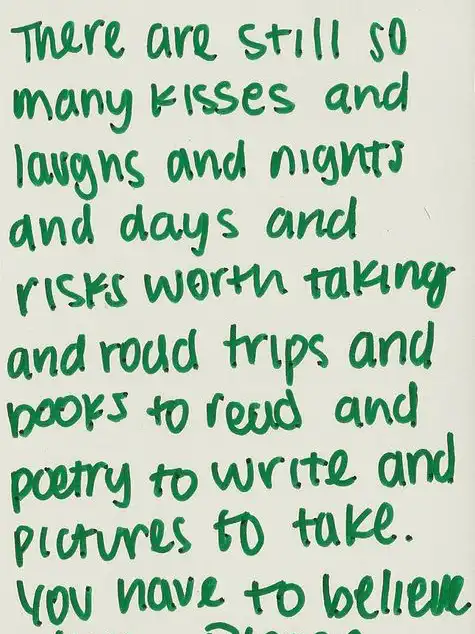 There are still so
many kisses and
laughs and nights
and days and
risks worth taking
and road trips and
books to read and
poetry to write and
pictures to take.
You have to believe